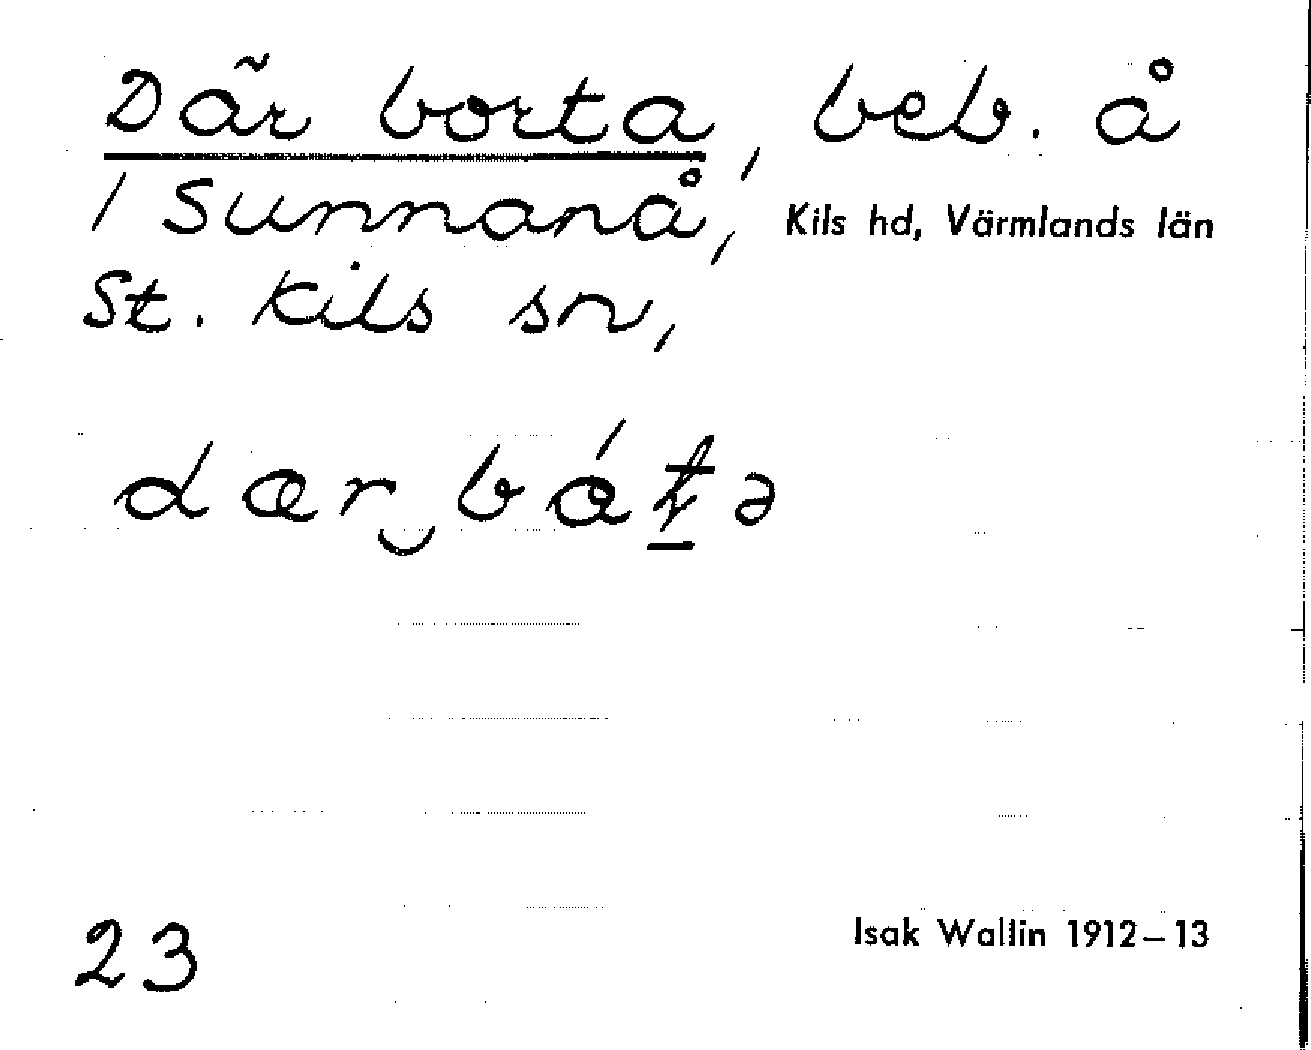 Där borta, beb. å
1 Sunnanå, Kils hd, Värmlands län
St. Kils sn,
dær‿bátə
23
Isak Wallin 1912–13